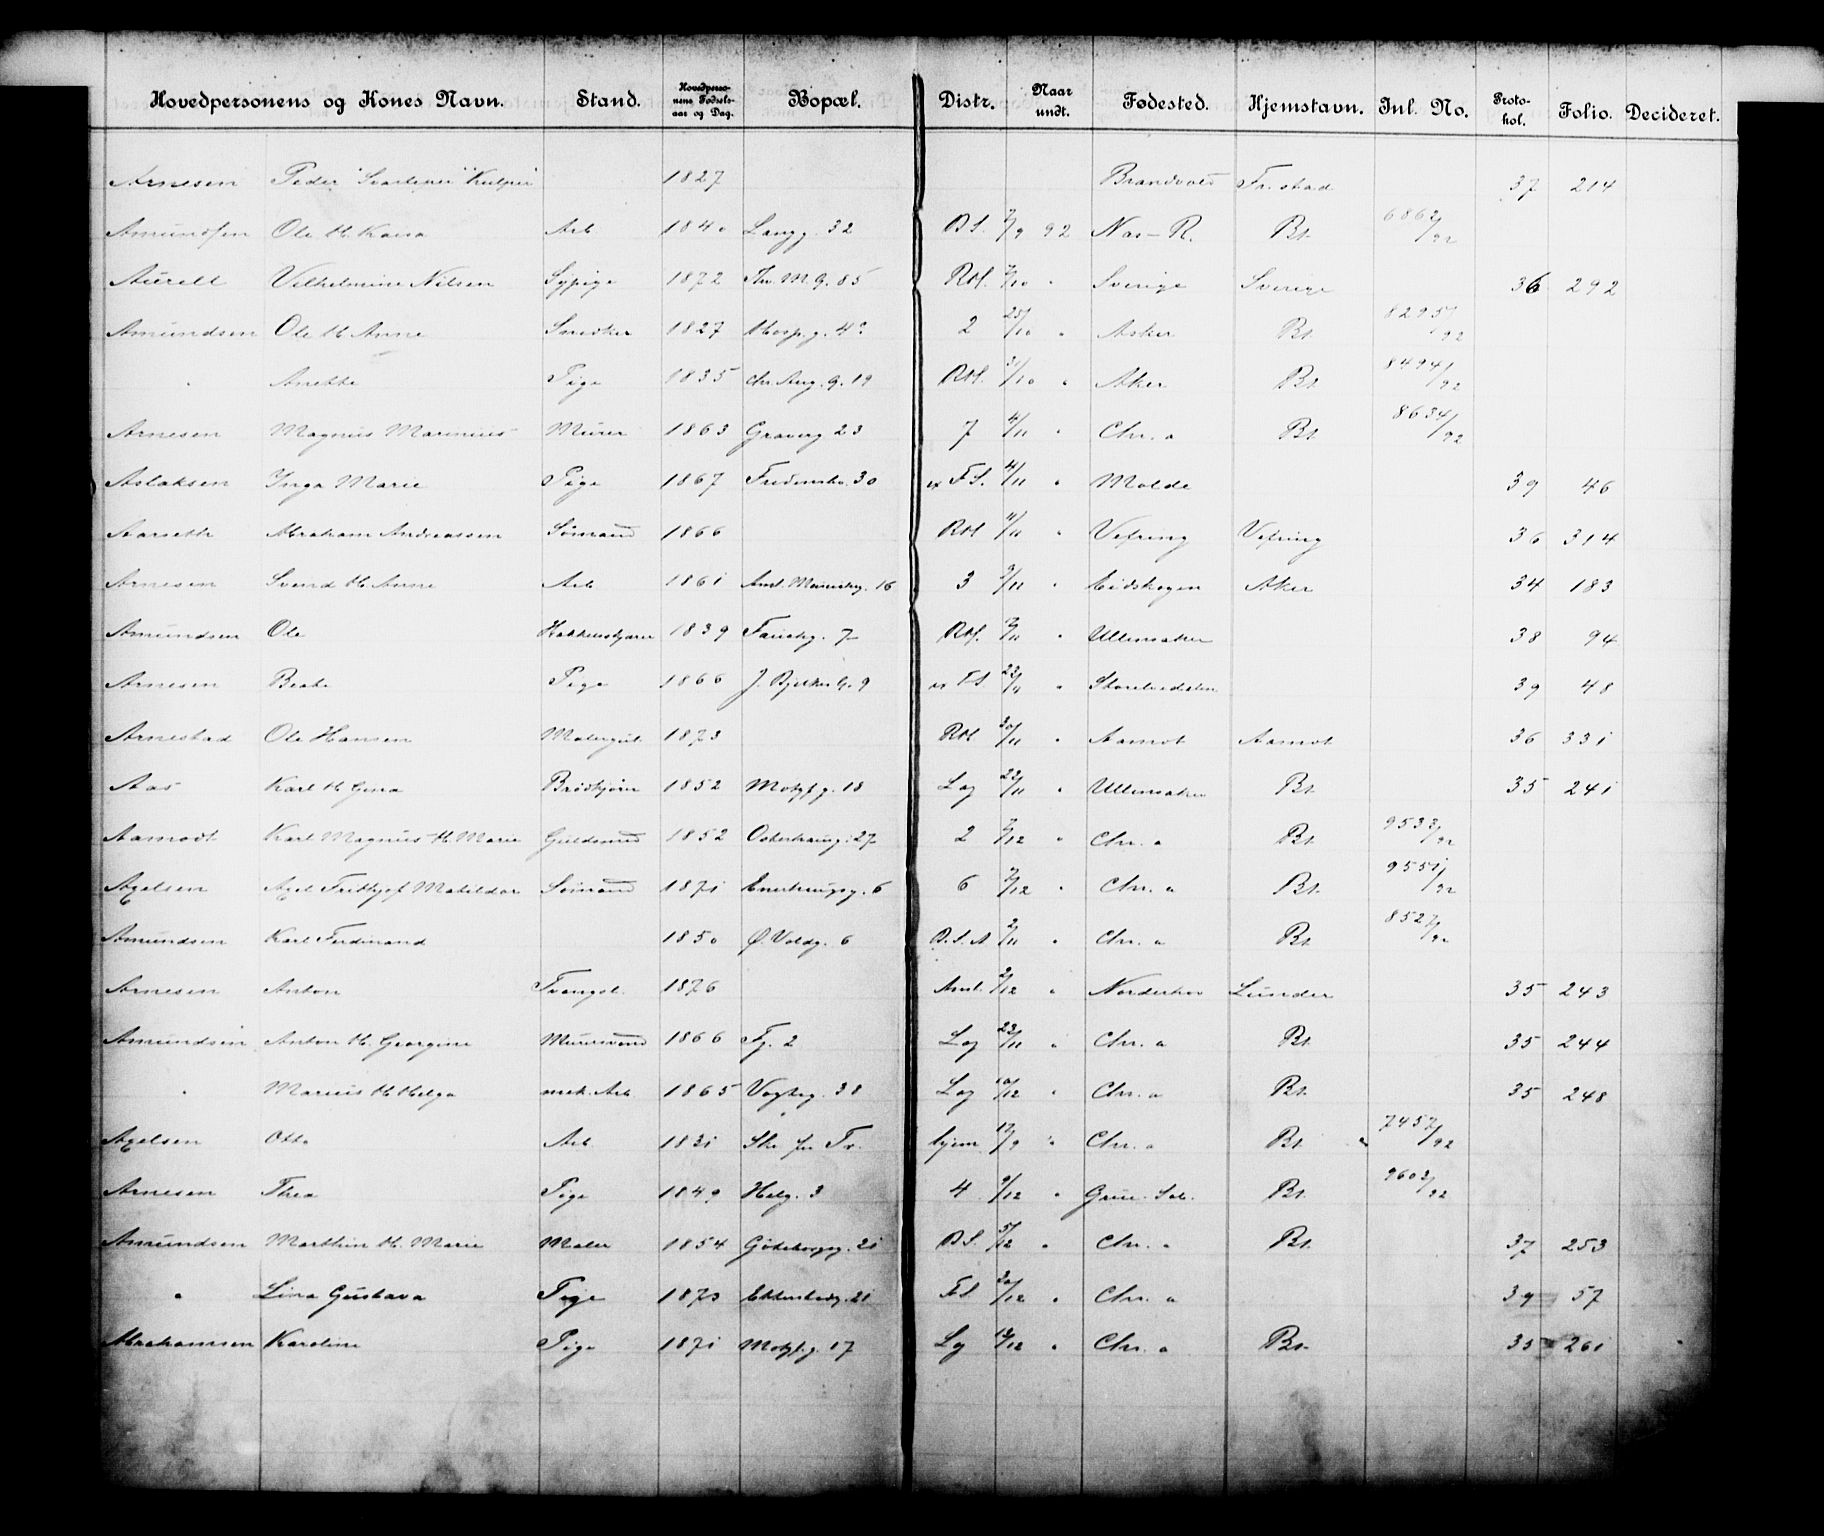 Hovedpersonens og Kones Navn. Stand. Hovedperso-nens Fødsels-aar og Dag. Bopæl. Distr. Naar undt. Fødested. Hjemstavn. Inl. No. Proto-kol. Folio. Decideret.
Arnesen Peder 1827 Brandvold Fr.stad 37 214
Amundsen Ole & Kaisa Arb 1840 Langg. 32 B.S. 7/9 92 Nas-R. Bt. 6862/92
Aurell Vilhelmine Nilsen Sypige 1872 Th. M. g. 85 RM. 7/10 " Sverige Sverige 36 292
Amundsen Ole & Anne Snedker 1827 Hosp.g. 2 25/10 " Asker Bt. 8295/92
" Anette Pige 1835 Chr. Aug. g. 19 RM. 31/10 " Aker Bt. 8494/92
Arnesen Magnus Marinius Murer 1863 Graverg 23 7 4/11 " Chr.a Bt 8634/92
Aslaksen Inga Marie Pige 1867 Fredensbo. 30 F.S. 4/11 " Molde 39 46
Aarseth Abraham Andreassen Sømand 1866 RM 4/11 " Vefring Vefring 36 314
Arnesen Svend & Anne Arb 1861 16 3 9/11 " Eidskogen Aker 34 183
Amundsen Ole 1839 7 RM. 7/11 " Ullensaker 38 94
Arnesen Beate Pige 1866 J. Bjelkes G. 9 F.S. 22/11 " 39 48
Arnestad Ole Hansen Malergut 1873 RM 30/11 " Aamot Aamot 36 331
Aas Karl & Gina Brødkjører 1852 Motzf.g. 18 Lag 22/11 " Ullensaker Bt 35 241
Aamodt Karl Magnus & Marie Guldsmed 1852 Osterhausg. 27 2 7/12 " Chr.a Bt 9533/92
Axelsen Axel Frithjof Matildor Sømand 1871 Enerhaugsg. 6 6 7/12 " Chr.a Bt. 9551/92
Amundsen Karl Ferdinand 1850 Ø. Voldg. 6 B.S.A 2/11 " Chr.a Bt 8527/92
Arnesen Anton Tvangsl. 1876 Amt. 2/12 " Norderhov Lunder 35 243
Amundsen Anton & Georgine Murersvend 1866 Tg. 2 Lag 23/11 " Chr.a Bt. 35 244
" Marius & Helga mek. Arb 1865 Vogtsg. 38 Lag 10/12 " Chr.a Bt. 35 248
Axelsen Otto Arb 1831 hjem 17/9 " Chr.a Bt 7457/92
Arnesen Thea Pige 1849 Helg. 3 4 9/12 " Grue. Sol. Bt. 9603/92
Amundsen Marthin & Marie Maler 1854 Göteborgg. 21 B.S. 5/12 " Chr.a Bt. 37 253
" Lina Gustava Pige 1873 21 F.S. 20/12 " Chr.a 39 57
Abrahamsen Karoline Pige 1871 Motzf.g. 17 Lg 18/12 " Chr.a Bt. 35 261